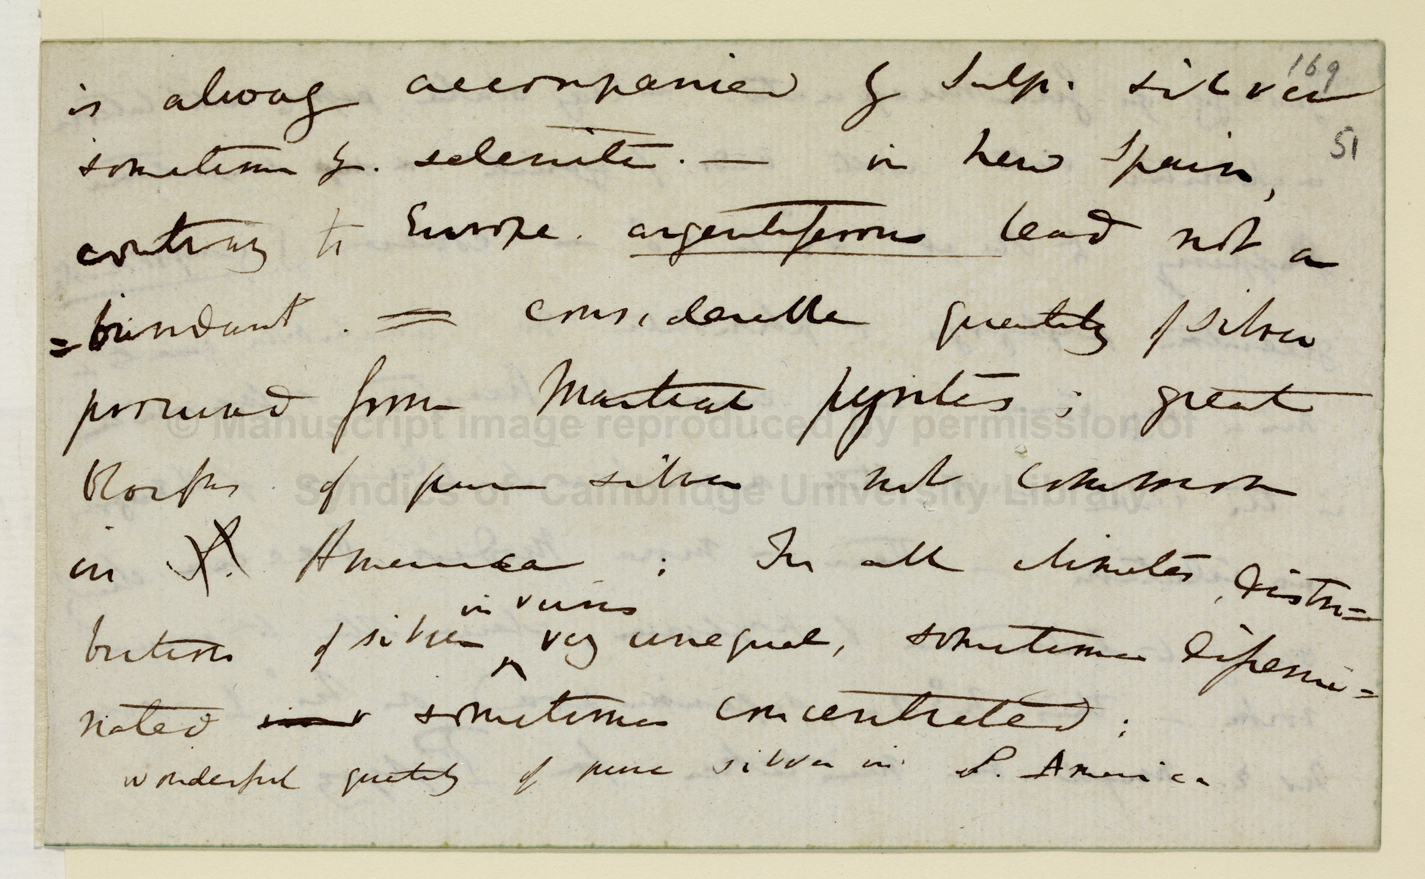 169
is always accompanied by Sulp: silver
51
sometimes by. selenite. — in new Spain,
contrary to Europe. argentiferous lead not a
=bundant. = considerable quantity of silver
procured from Martial pyrites; great
blocks of pure silver not common
in S. America; In all climates, distri=
in veins
bution of silver ^ very unequal, sometimes dissemi=
nated sometimes concentrated;
wonderful quantity of pure silver in S. America
© Manuscript image reproduced by permission of
Syndics of Cambridge University Library